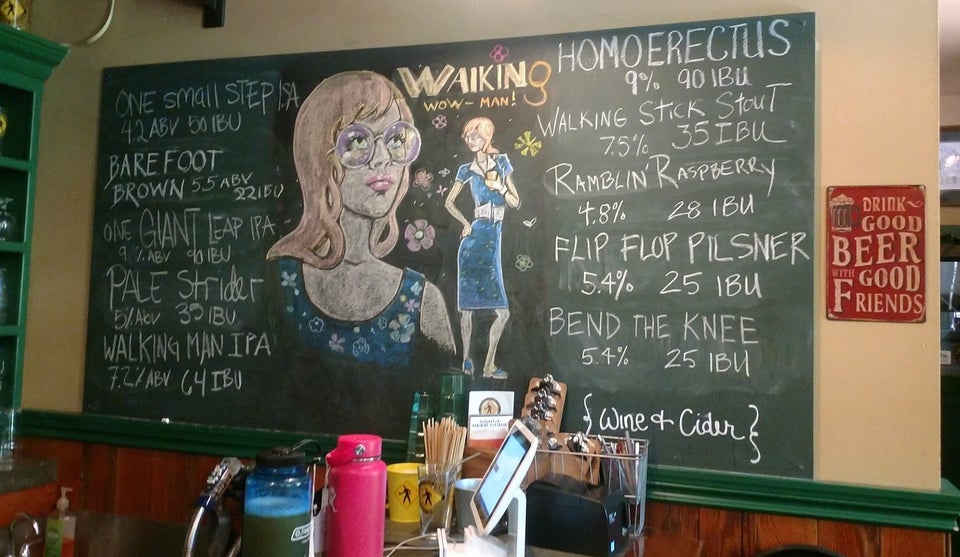 ONE small STEP ISA
4.2 ABV 50 IBU
BAREFOOT
BROWN 5.5 ABV
22 IBU
ONE GIANT LEAP IPA
9% ABV 90 IBU
PALE Strider
5% ABV 35 IBU
WALKING MAN IPA
7.2% ABV 64 IBU
WALKING
WOW-MAN!
HOMO ERECTUS
9% 90 IBU
WALKING STICK STOUT
7.5% 35 IBU
RAMBLIN' RASPBERRY
4.8% 28 IBU
FLIP FLOP PILSNER
5.4% 25 IBU
BEND THE KNEE
5.4% 25 IBU
{Wine & Cider}
DRINK
GOOD
BEER
WITH GOOD
FRIENDS